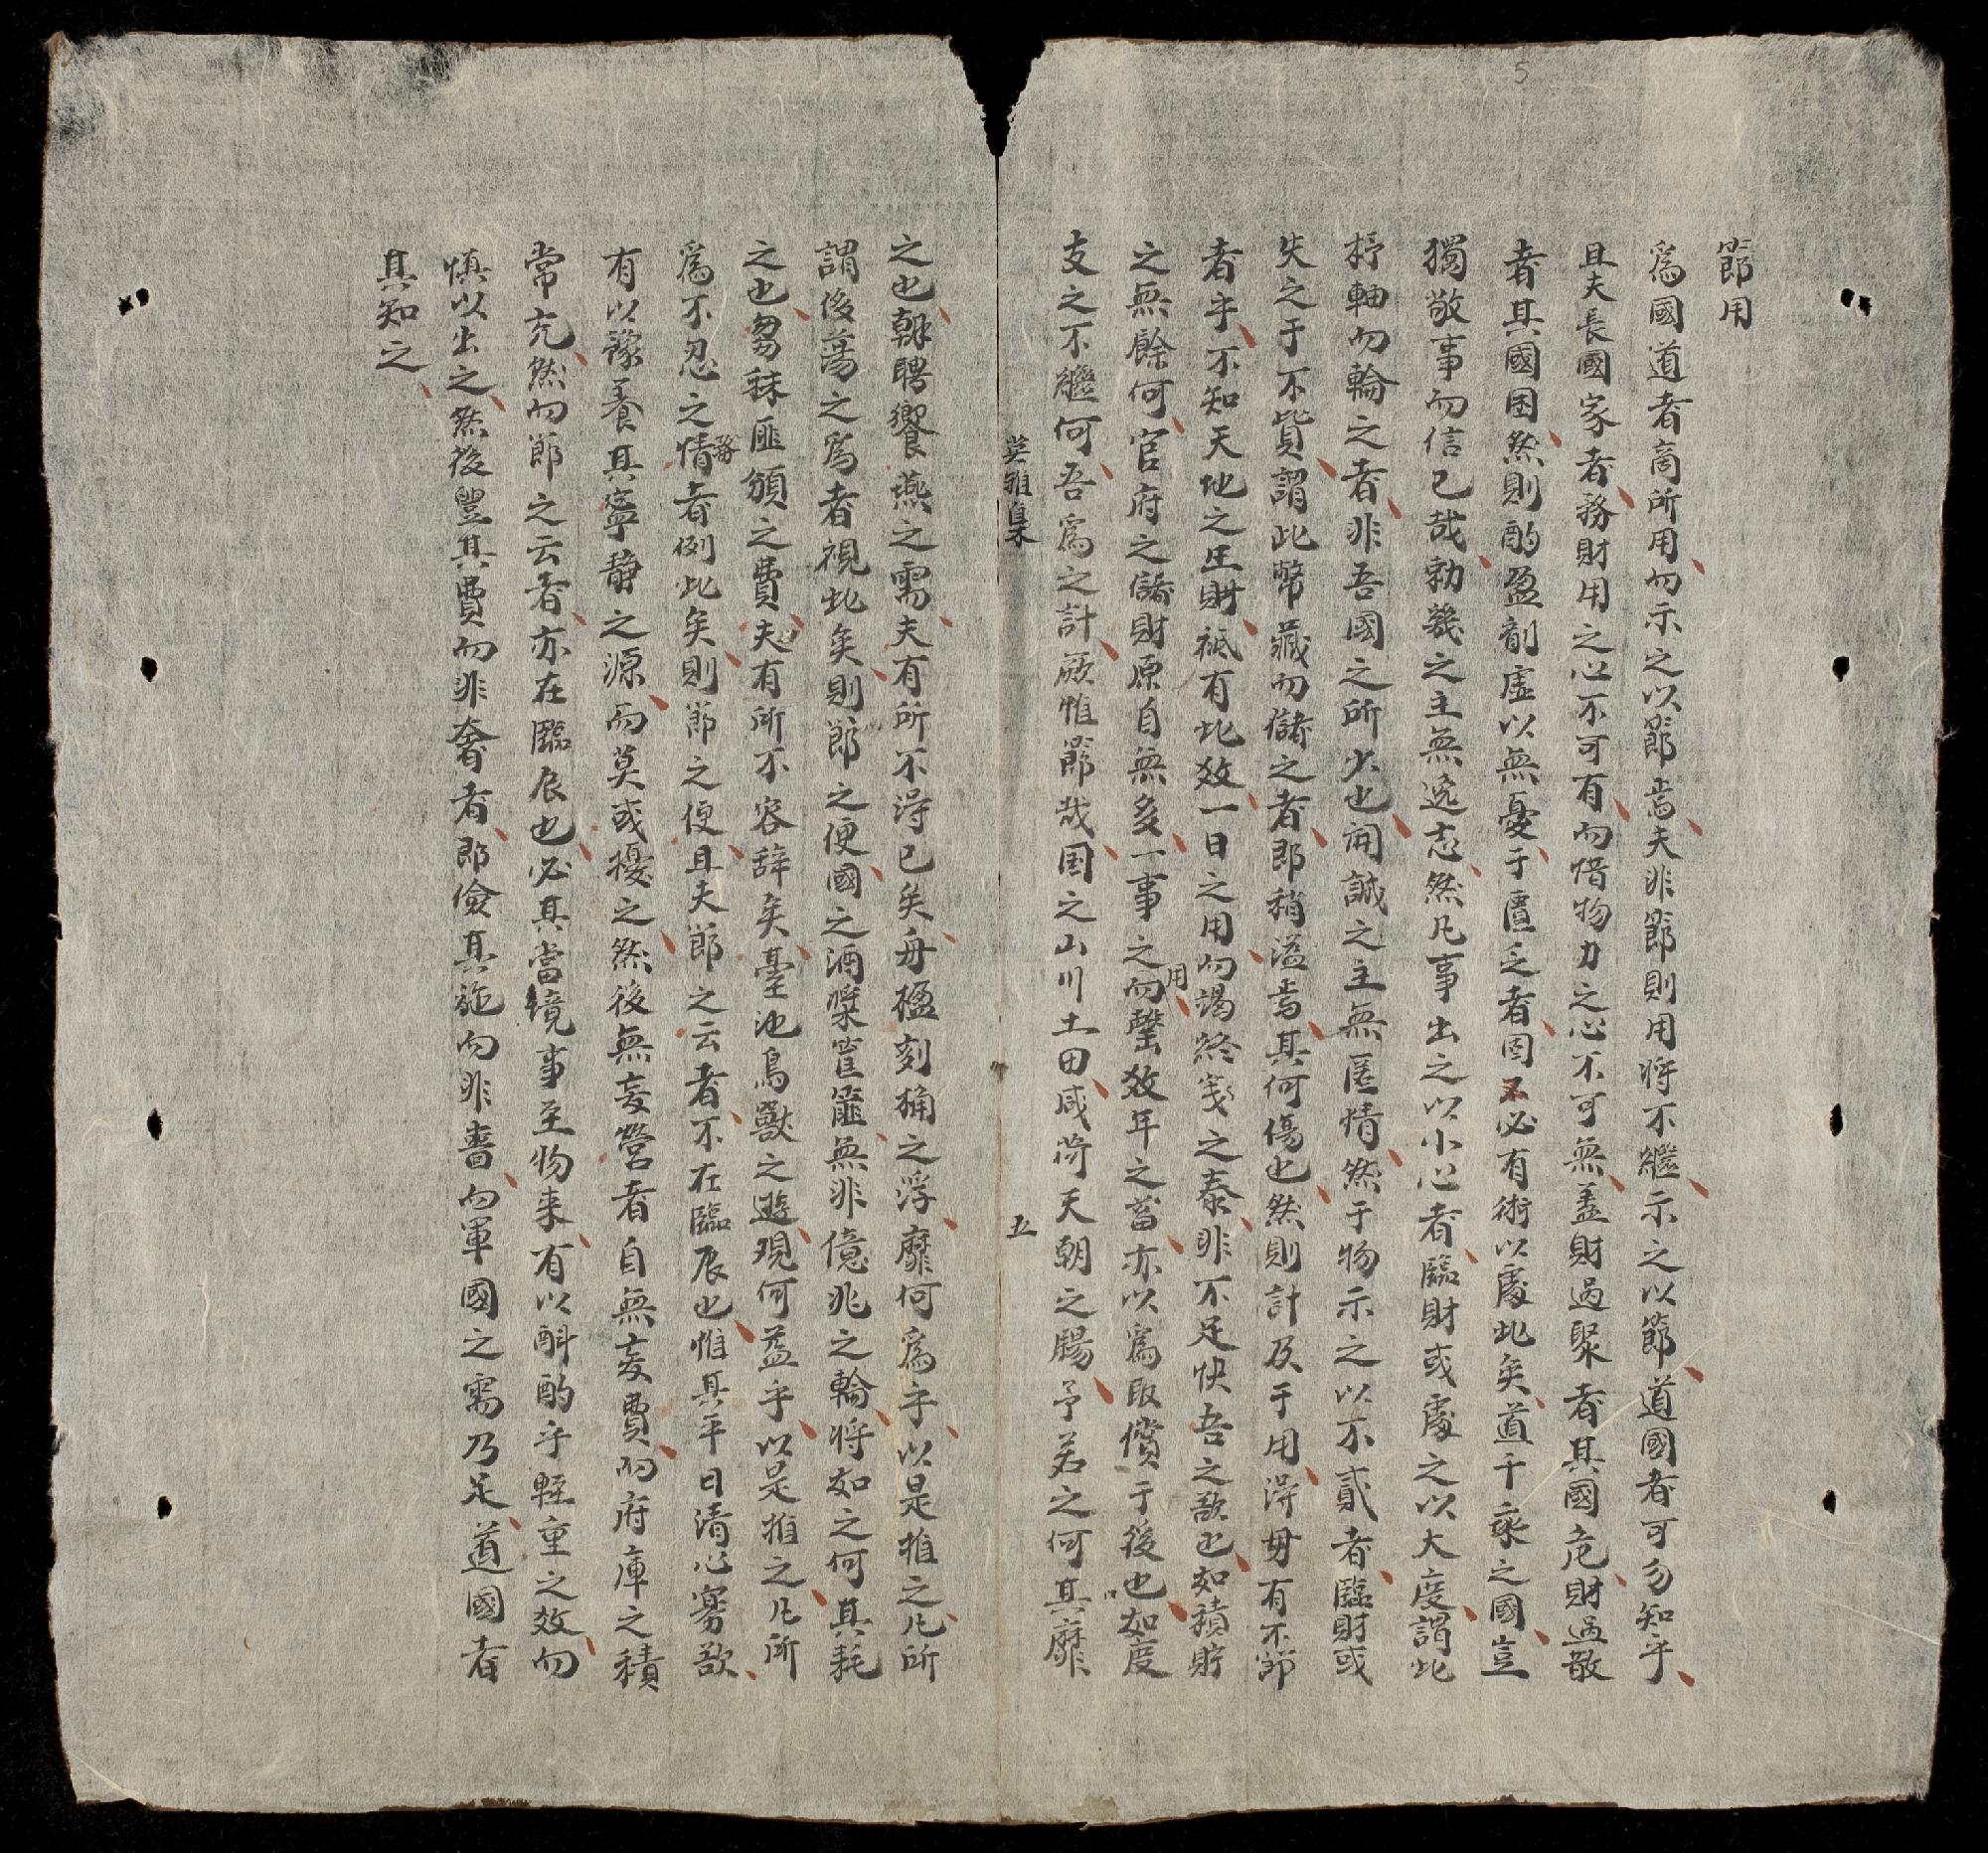 節用
為國道者商所用而示之以節焉夫非節則用將不繼示之以節道國者可勿知乎
且夫長國家者務財用之心不可有而惜物力之心不可無盖財過聚者其國危財過散
者其國困然則酌盈剖虛以無憂于匱乏者固不必有術以處此矣道千乘之國豈
獨敬事而信已哉勑幾之主無逸志然凡事出之以小心者臨財或處之以大度謂此
杼軸而輪之者非吾國之所少也開誠之主無匿情然于物示之以不貳者臨財或
失之于不貲謂此幣藏而儲之者即稍溢焉其何傷也然則計及于用淂毋有不節
者乎不知天地之生財祗有此效一日之用而竭終歲之泰非不足快吾之欲也如積貯
之無餘何官府之儲財原自無多一事之用而罄效年之蓄亦以為取償于後也如度
支之不繼何吾為之計厥惟節哉国之山川土田咸荷天朝之賜予若之何其靡
英雅集
五
之也朝聘饗燕之需夫有所不淂已矣舟楹刻桷之浮靡何為乎以是推之凡所
謂後蕩之為者視此矣則節之便國之酒漿筐篚無非億兆之輪將如之何其耗
之也芻秣匪頒之費夫有所不容辞矣臺池鳥獸之遊观何益乎以是推之凡所
為不忍之情者例此矣則節之便且夫節之云者不在臨辰也惟其平日清心寡欲
有以豫養其寧静之源而莫或擾之然後無妄營者自無妄費而府庫之積
常充然而節之云者亦在臨辰也必其當境事至物来有以斟酌乎輊重之效而
慎以出之然後豐其費而非奢者即儉其施而非嗇而軍國之需乃足道國者
其知之